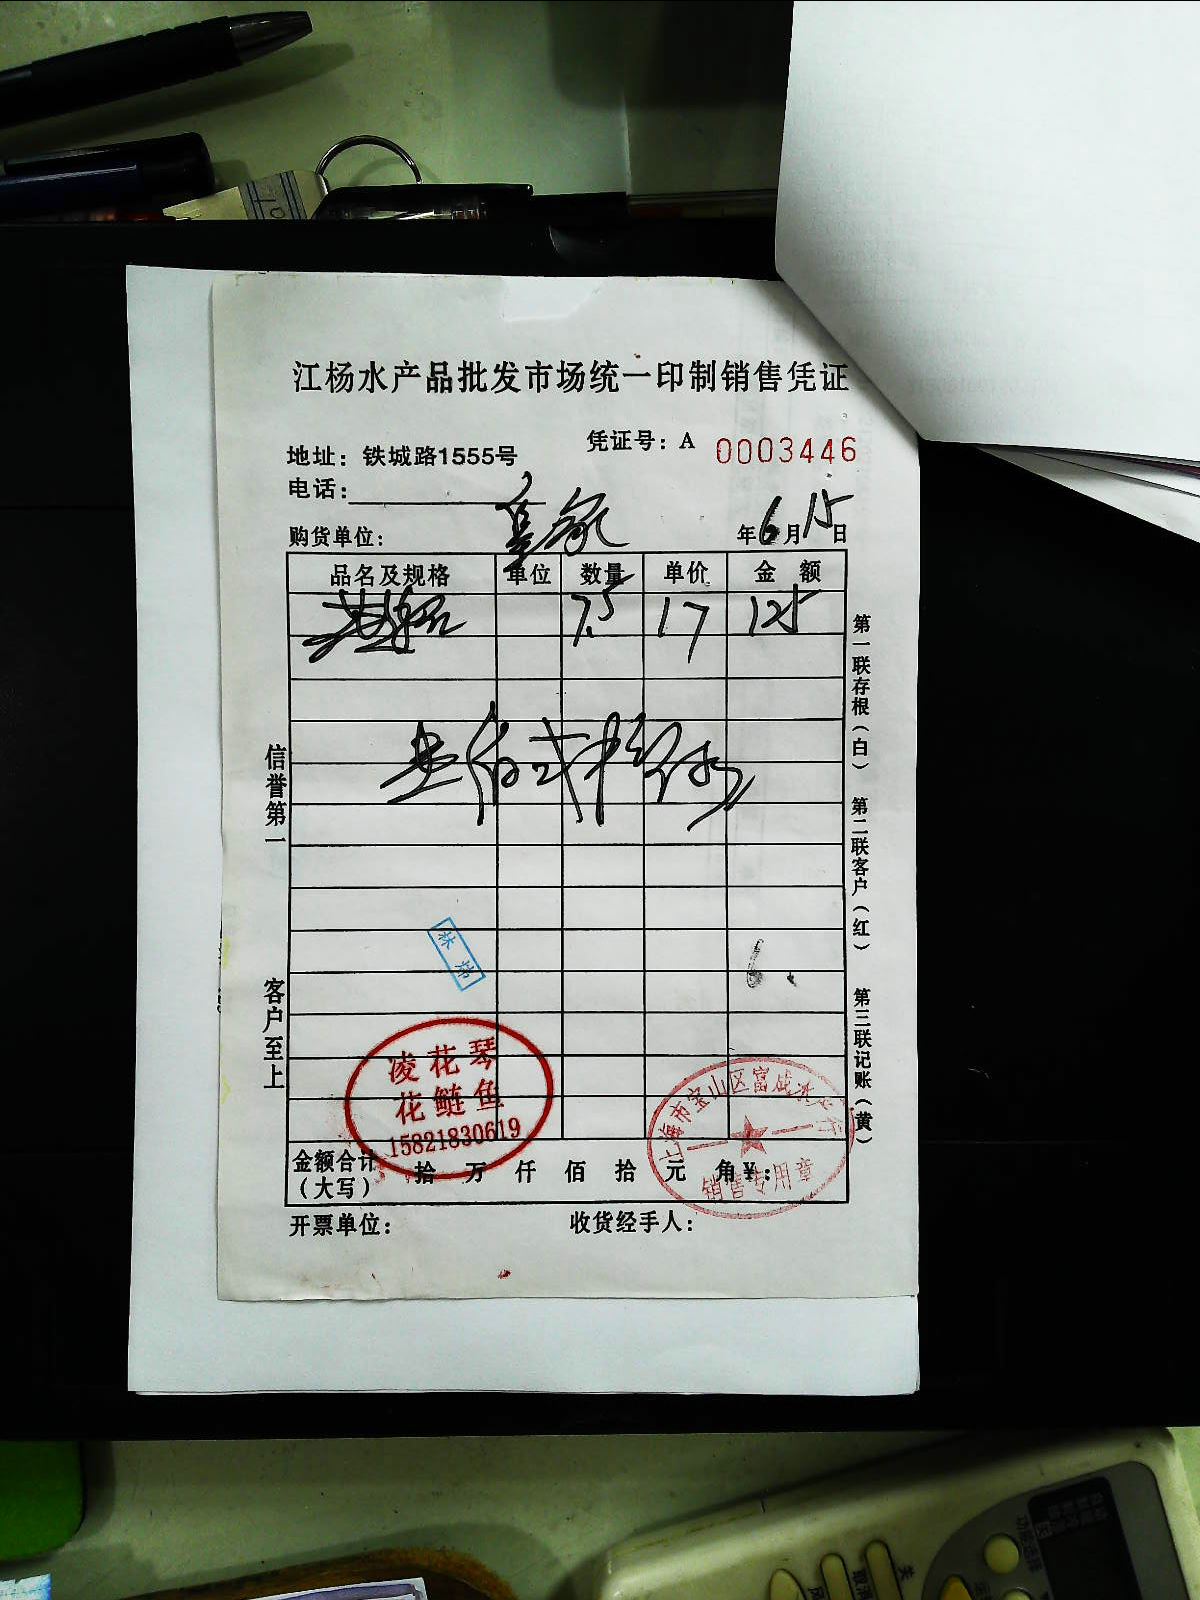 江杨水产品批发市场统一印制销售凭证
凭证号：A 0003446
地址：铁城路1555号
电话：
购货单位： 年6月15日
品名及规格 单位 数量 单价 金额
7.5 17 125
信誉第一
客户至上
第一联存根（白） 第二联客户（红） 第三联记账（黄）
林炜
6.
凌花琴
花鲢鱼
15821830619
上海市宝山区富成水
销售专用章
金额合计（大写） 拾 万 仟 佰 拾 元 角¥：
开票单位： 收货经手人：